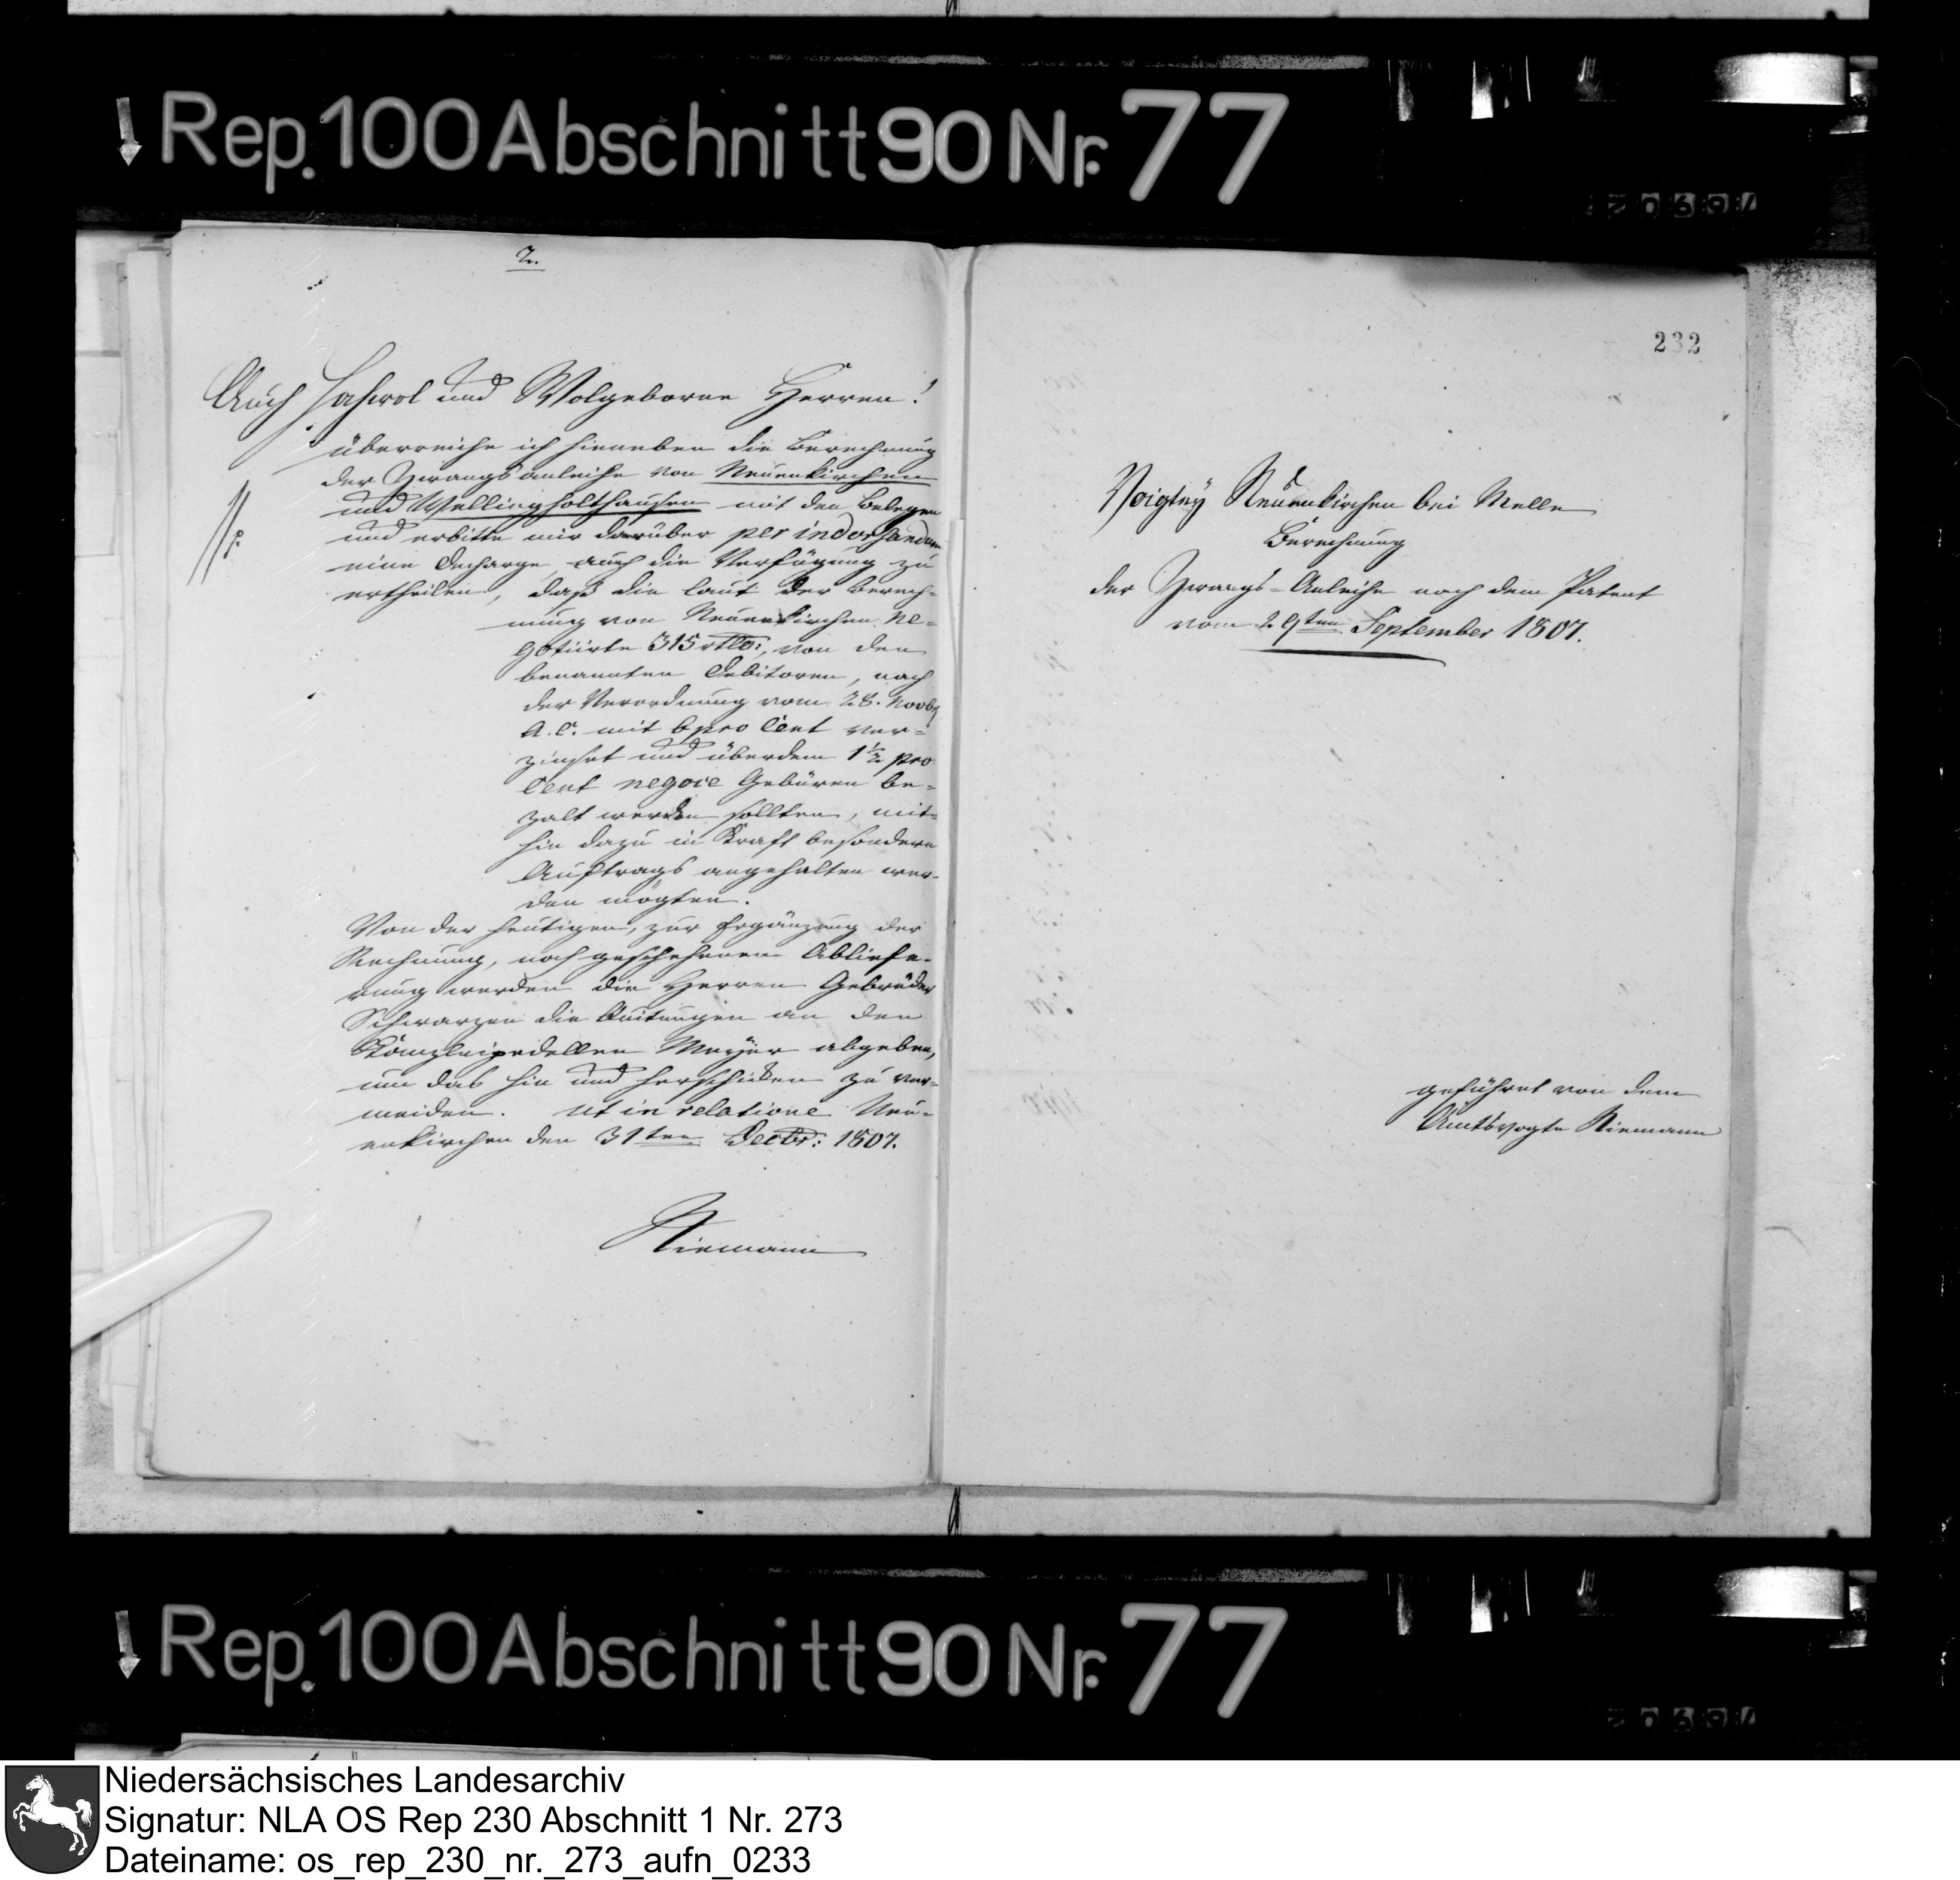 Rep. 100 Abschnitt 90 Nr. 77
2.
Auch Hochwol und Wolgeborne Herren!
überreiche ich hieneben die Berechnung
der Zwangsanleihe von Neuenkirchen
und Wellingholthausen mit den Belegen
und erbitte mir darüber per indorsandum
eine Decharge, auch die Verfügung zu
ertheilen, daß die laut der Berech-
nung von Neuenkirchen ne-
gotiirte 315 rtlr:, von den
benannten Debitoren, nach
der Verordnung vom 28. Novbr
a. c. mit 6 pro Cent ver-
zinset und überdem 1 1/2 pro
Cent negoce Gebüren be-
zalt werden sollten, mit-
hin dazu in Kraft besondern
Auftrags angehalten wer-
den mögten.
Von der heutigen, zur Ergänzung der
Rechnung, noch geschehenen Abliefe-
rung werden die Herren Gebrüder
Schwarzen die Quitungen an den
Kanzleipedellen Meyer abgeben,
um das hin und herschicken zu ver-
meiden. ut in relatione Neu-
enkirchen den 31ten Decbr: 1807.
Niemann
232
Voigtey Neuenkirchen bei Melle
Berechnung
der Zwangs-Anleihe nach dem Patent
vom 29ten September 1807.
geführet von dem
Amtsvogte Niemann
Rep. 100 Abschnitt 90 Nr. 77
Niedersächsisches Landesarchiv
Signatur: NLA OS Rep 230 Abschnitt 1 Nr. 273
Dateiname: os_rep_230_nr._273_aufn_0233